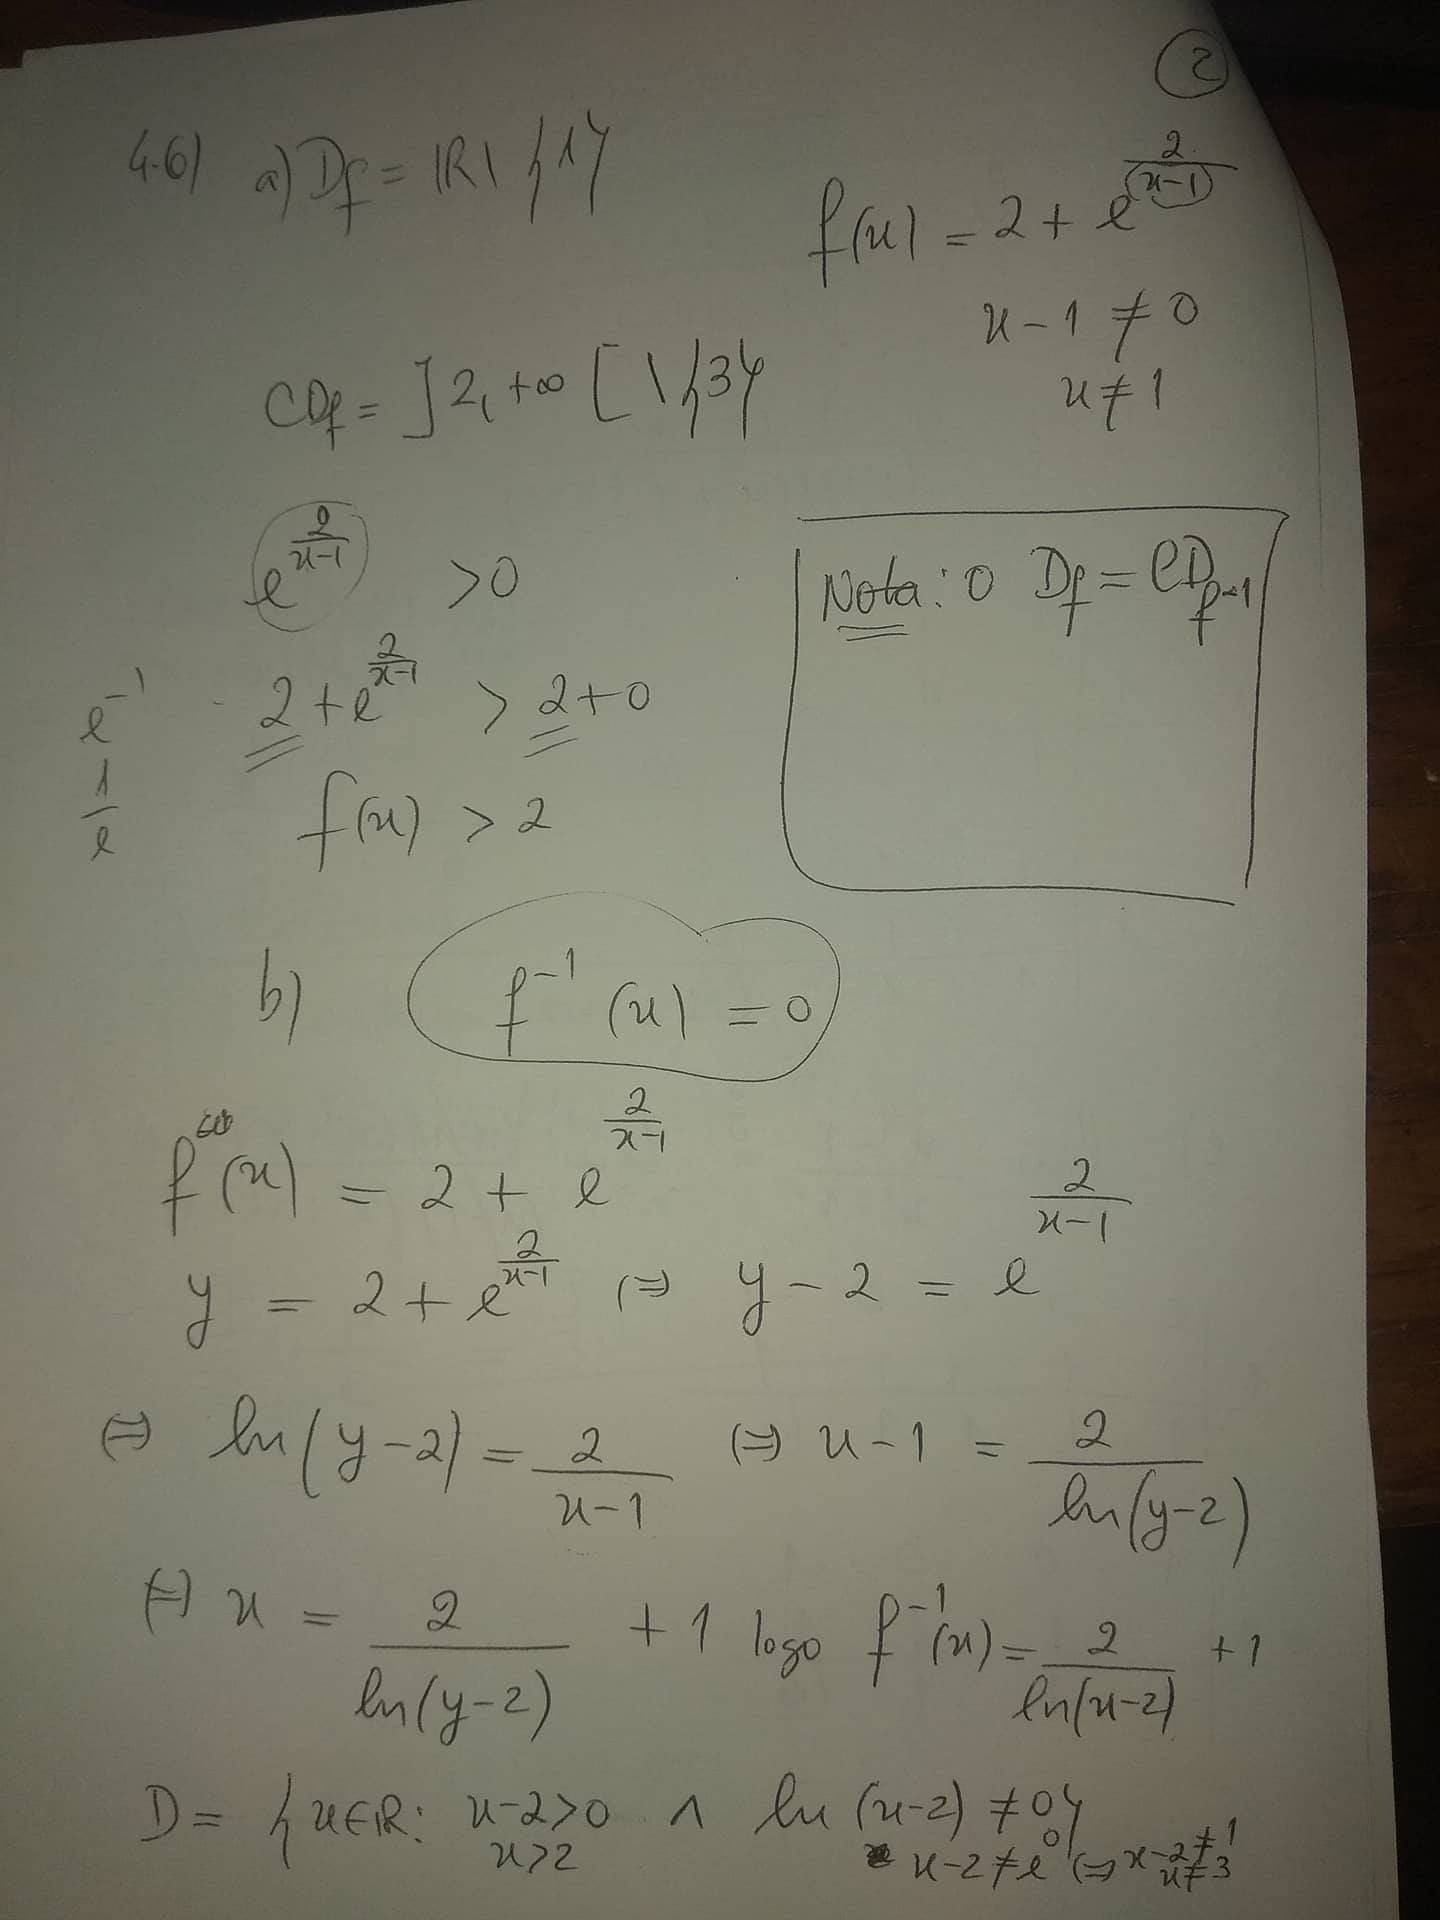 2
4.6) a) Df = IR \ {1}
f(x) = 2 + e^(2/(x-1))
x - 1 ≠ 0
x ≠ 1
CDf = ]2, +∞[ \ {3}
e^(2/(x-1)) > 0
Nota: O Df = CDf⁻¹
e⁻¹
2 + e^(2/(x-1)) > 2 + 0
1/e
f(x) > 2
b) f⁻¹(x) = 0
f(x) = 2 + e^(2/(x-1))
y = 2 + e^(2/(x-1)) (=) y - 2 = e^(2/(x-1))
(=) ln(y-2) = 2/(x-1) (=) x - 1 = 2/ln(y-2)
(=) x = 2/ln(y-2) + 1 logo f⁻¹(x) = 2/ln(x-2) + 1
D = {x∈IR: x-2>0 ∧ ln(x-2) ≠ 0}
x>2 x-2≠e⁰ (=) x-2≠1
x≠3